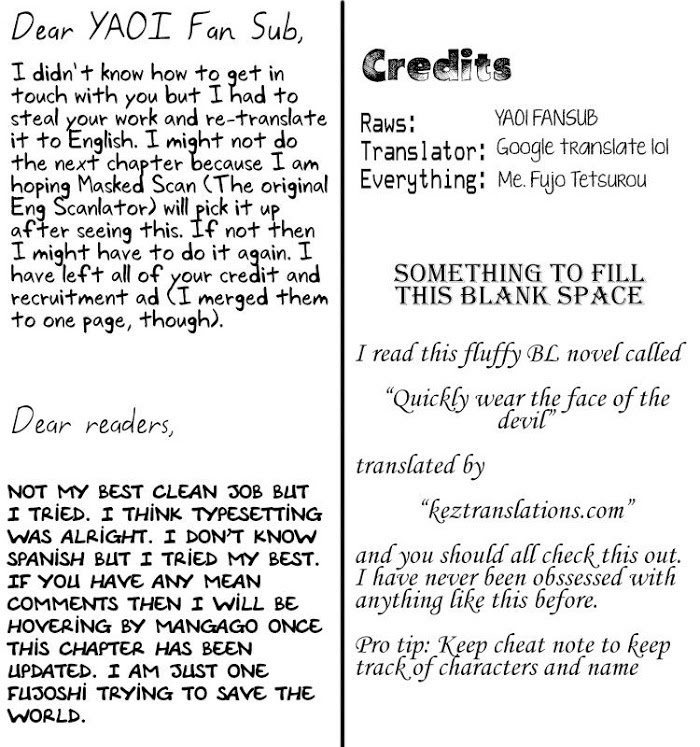 Dear YAOI Fan Sub,
I didn't know how to get in
touch with you but I had to
steal your work and re-translate
it to English. I might not do
the next chapter because I am
hoping Masked Scan (The original
Eng Scanlator) will pick it up
after seeing this. If not then
I might have to do it again. I
have left all of your credit and
recruitment ad (I merged them
to one page, though).
Dear readers,
NOT MY BEST CLEAN JOB BUT
I TRIED. I THINK TYPESETTING
WAS ALRIGHT. I DON'T KNOW
SPANISH BUT I TRIED MY BEST.
IF YOU HAVE ANY MEAN
COMMENTS THEN I WILL BE
HOVERING BY MANGAGO ONCE
THIS CHAPTER HAS BEEN
UPDATED. I AM JUST ONE
FUJOSHI TRYING TO SAVE THE
WORLD.
Credits
Raws: YAOI FANSUB
Translator: Google translate lol
Everything: Me. Fujo Tetsurou
SOMETHING TO FILL
THIS BLANK SPACE
I read this fluffy BL novel called
“Quickly wear the face of the
devil”
translated by
“keztranslations.com”
and you should all check this out.
I have never been obssessed with
anything like this before.
Pro tip: Keep cheat note to keep
track of characters and name